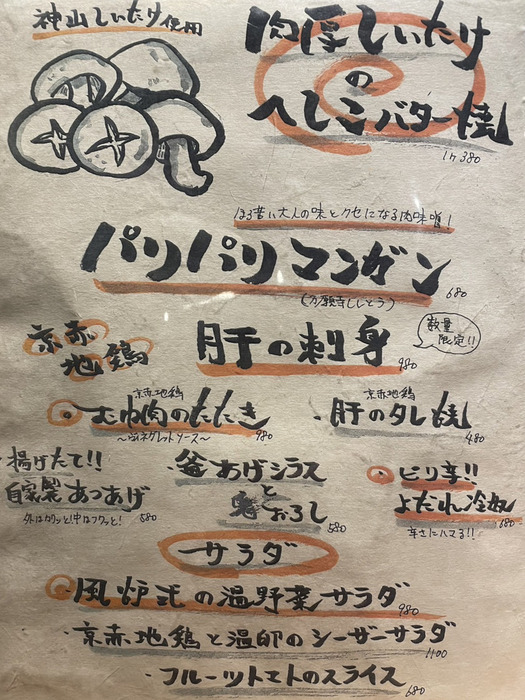 神山しいたけ使用
肉厚しいたけ
の
へしこバター焼
1ヶ380
ほろ苦い大人の味とクセになる肉味噌!
パリパリマンガン
(万願寺ししとう) 680
京赤
地鶏
肝の刺身 980
数量
限定!!
京赤地鶏
むね肉のたたき
〜ヴィネグレットソース〜 980
京赤地鶏
・肝のタレ焼 480
揚げたて!!
自家製あつあげ
外はカリッと!中はフワッと! 580
・釜あげシラス
と
鬼おろし 580
ピリ辛!!
よだれ冷奴
辛さにハマる!! 680
サラダ
・風炉の温野菜サラダ 980
・京赤地鶏と温卵のシーザーサラダ 1100
・フルーツトマトのスライス 680